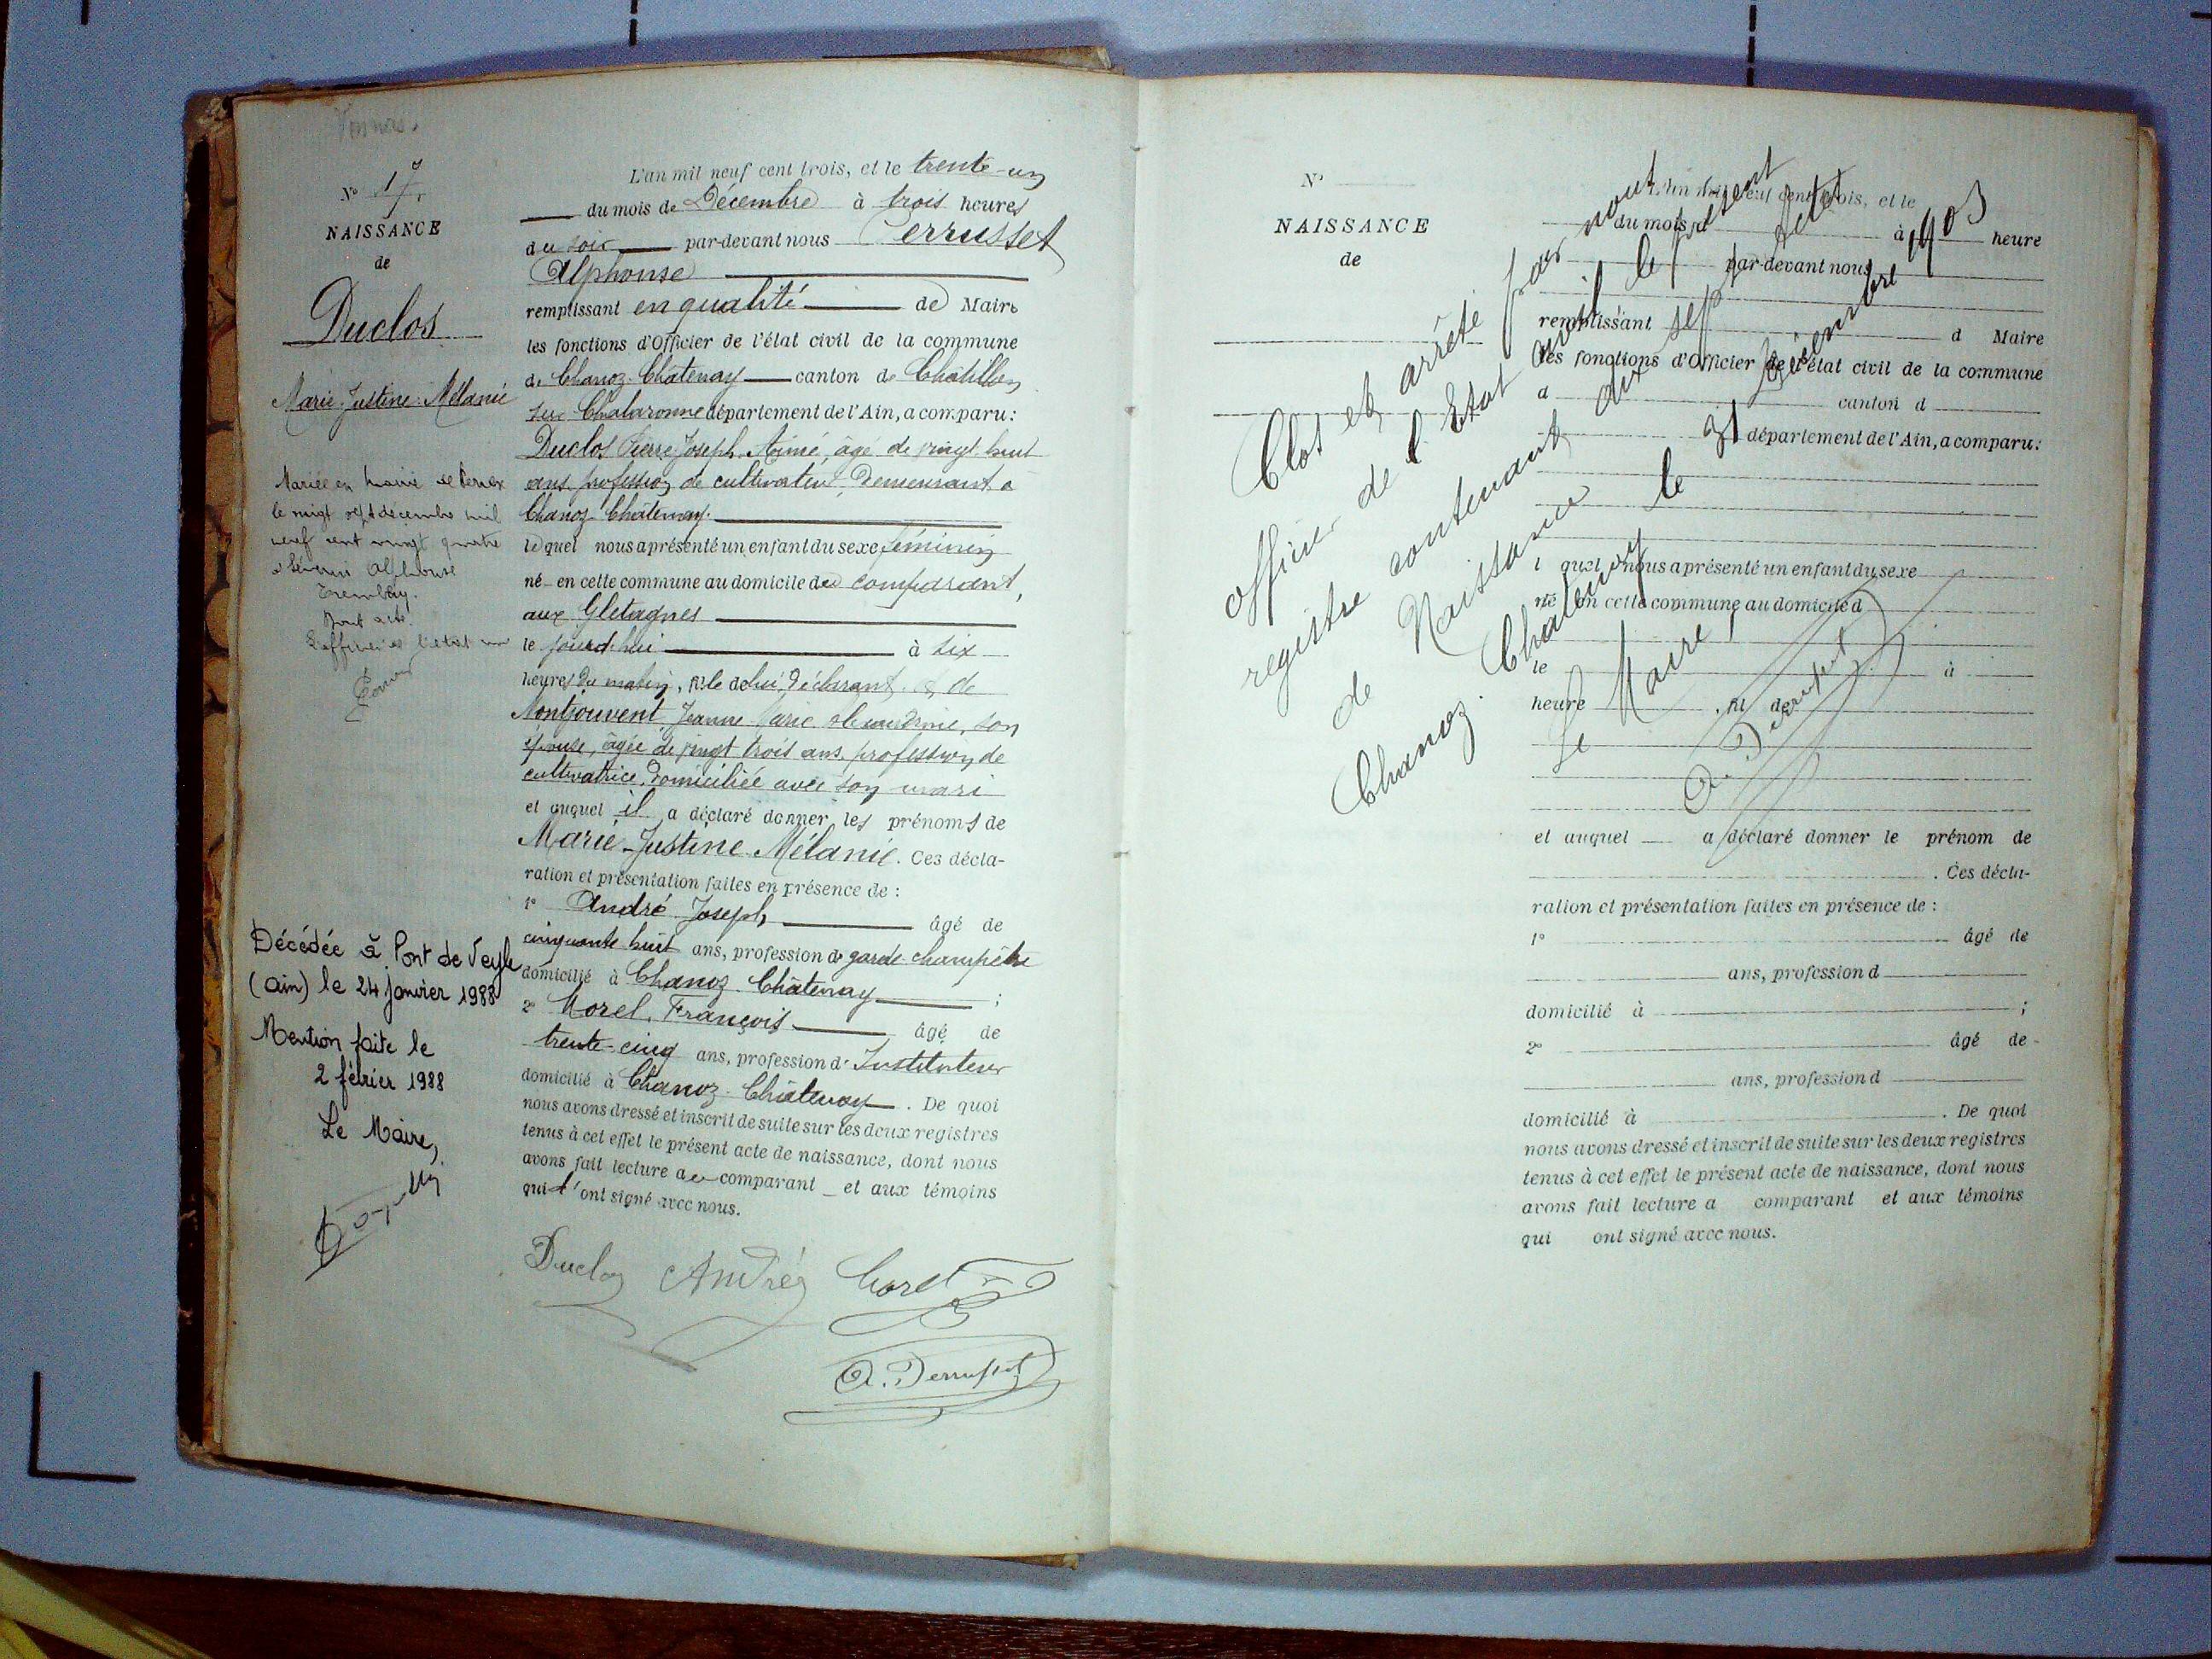 Nº 17
NAISSANCE
de
Duclos
Marie-Justine-Mélanie
Mariée en mairie de
le vingt sept décembre mil
neuf cent vingt quatre
à Séverin Alphonse
Tremblay.
Dont acte.
L'officier de l'état
Décédée à Pont de Veyle
(ain) le 24 janvier 1988
Mention faite le
2 février 1988
Le Maire,
L'an mil neuf cent trois, et le trente-un
du mois de Décembre à trois heures
du soir par-devant nous Perrusset
Alphonse
remplissant en qualité de Maire
les fonctions d'Officier de l'état civil de la commune
de Chanoz-Châtenay canton de Châtillon
sur Chalaronne département de l'Ain, a comparu :
Duclos Pierre Joseph Aimé, âgé de vingt huit
ans, profession de cultivateur, demeurant à
Chanoz-Châtenay.
lequel nous a présenté un enfant du sexe féminin
né en cette commune au domicile du comparant,
aux Gletagnes
le jourd'hui à six
heures du matin, fille de lui, déclarant, & de
Montjouvent, Jeanne Marie Alexandrine, son
épouse, âgée de vingt trois ans, profession de
cultivatrice, domiciliée avec son mari
et auquel il a déclaré donner les prénoms de
Marie-Justine-Mélanie. Ces décla-
ration et présentation faites en présence de :
1º André Joseph âgé de
cinquante huit ans, profession de garde-champêtre
domicilié à Chanoz-Châtenay ;
2º Morel François âgé de
trente-cinq ans, profession d'Instituteur
domicilié à Chanoz-Châtenay. De quoi
nous avons dressé et inscrit de suite sur les deux registres
tenus à cet effet le présent acte de naissance, dont nous
avons fait lecture au comparant et aux témoins
qui l'ont signé avec nous.
Duclos André Morel
A. Perrusset
Nº
NAISSANCE
de
L'an mil neuf cent trois, et le
du mois d à heure
par-devant nous
remplissant d Maire
les fonctions d'Officier de l'état civil de la commune
d canton d
département de l'Ain, a comparu :
l quel nous a présenté un enfant du sexe
né en cette commune au domicile d
le à
heure , fil de
et auquel a déclaré donner le prénom de
. Ces décla-
ration et présentation faites en présence de :
1º âgé de
ans, profession d
domicilié à ;
2º âgé de
ans, profession d
domicilié à . De quoi
nous avons dressé et inscrit de suite sur les deux registres
tenus à cet effet le présent acte de naissance, dont nous
avons fait lecture a comparant et aux témoins
qui ont signé avec nous.
Clos et arrêté par nous
officier de l'Etat civil le présent
registre contenant dix sept actes
de Naissance le 31 Décembre 1903
Chanoz-Châtenay
Le Maire,
A. Perrusset